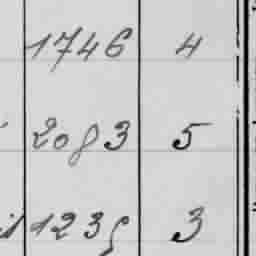 1746 4
2083 5
123 3